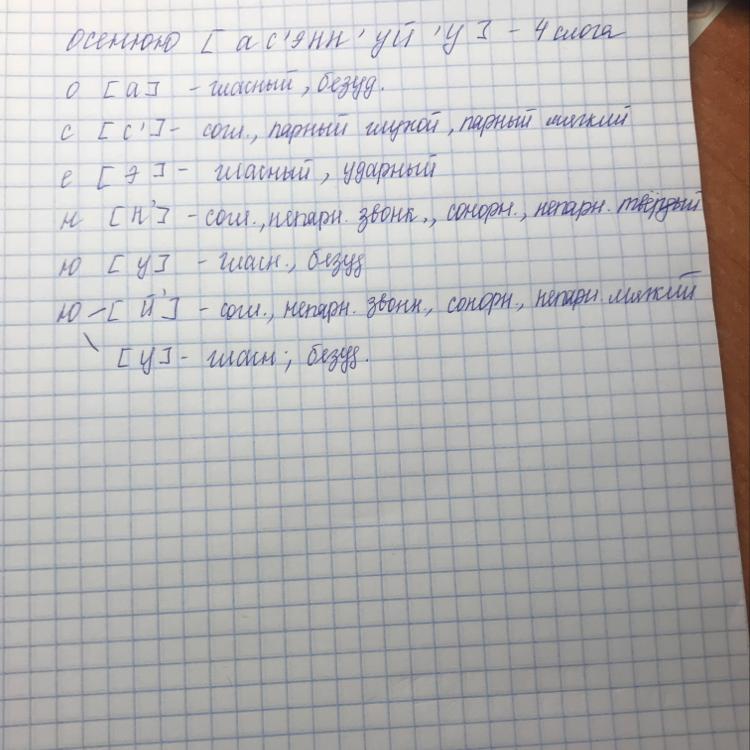 осенюю [ а с ' э н н ' у й ' у ] - 4 слога
о [а] - гласный, безуд.
с [с'] - согл., парный глухой, парный мягкий
е [э] - гласный, ударный
н [н'] - согл., непарн. звонк., сонорн., непарн. твёрдый
ю [у] - гласн., безуд
ю - [й'] - согл., непарн. звонк., сонорн., непарн. мягкий
\ [у] - гласн., безуд.